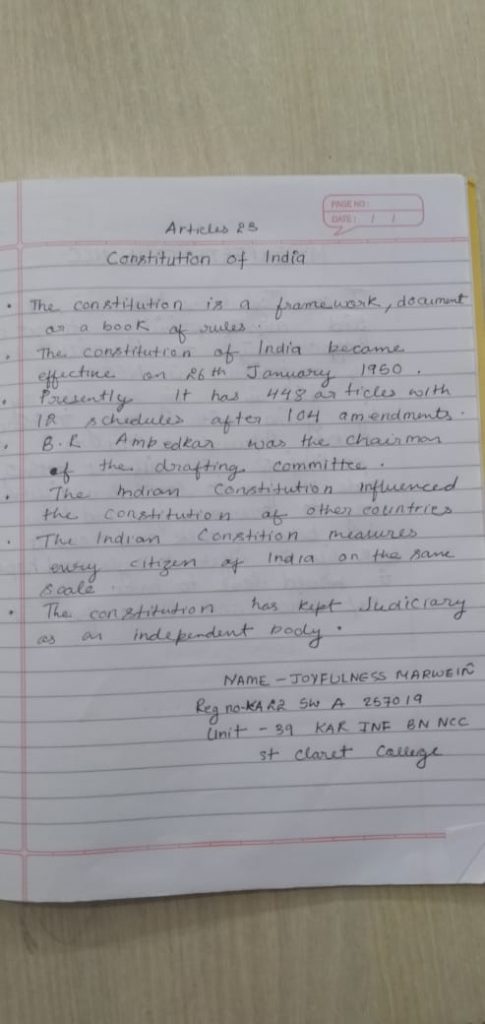 PAGE NO:
DATE: / /
Articles 23
Constitution of India
• The constitution is a framework, document
or a book of rules.
• The constitution of India became
effective on 26th January 1950.
• Presently It has 448 articles with
12 schedules after 104 amendments.
• B.R Ambedkar was the chairman
of the drafting committee.
• The Indian Constitution Influenced
the constitution of other countries
• The Indian Constition measures
every citizen of India on the same
scale.
• The constitution has kept Judiciary
as an independent body.
NAME - JOYFULNESS MARWEIN
Reg no-KAR2 SW A 257019
Unit - 39 KAR INF BN NCC
st Claret College